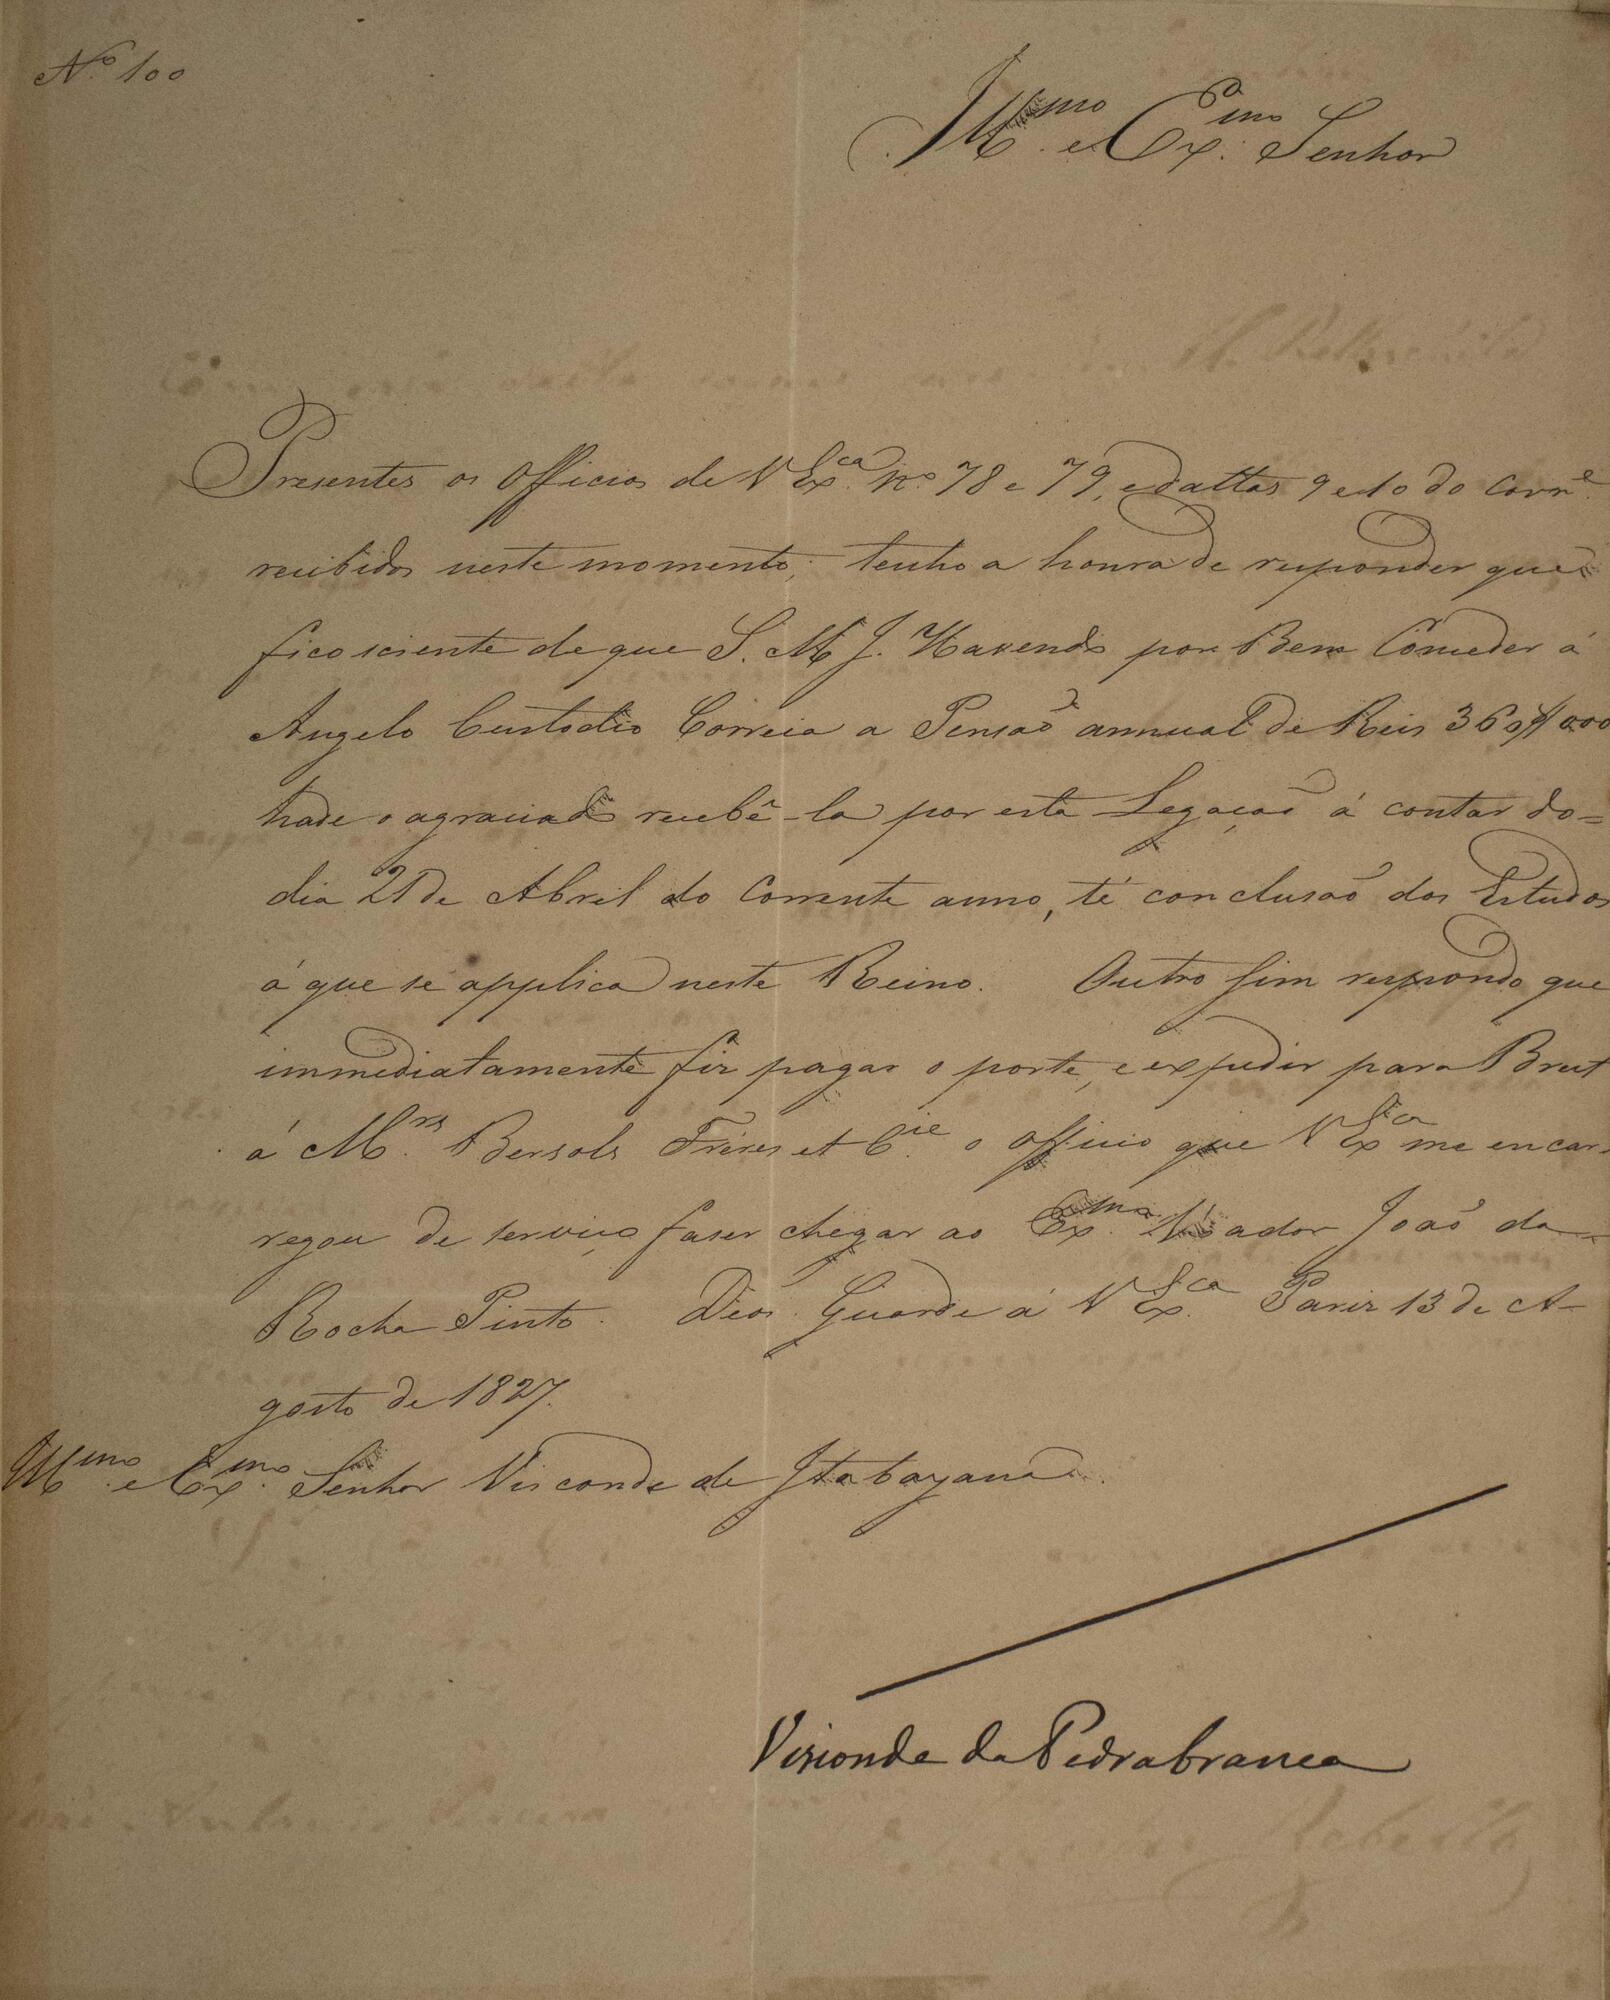 Nº 100
Illmo. e Exmo. Senhor
Presentes os Officios de V Exca. Nos 78 e 79, e dattas 9 e 10 do Corre.
recibidos neste momento; tenho a honra de responder que
fico sciente de que S. M. J. Havendo por Bem Conceder á
Angelo Custodio Correia a Pensaõ annual de Reis 360$000
hade o agraciado recebê-la por esta Legaçaõ á contar do=
dia 21 de Abril do Corrente anno, té conclusaõ dos Estudos
á que se applica neste Reino. Outro sim respondo que
immediatamente fiz pagar o porte, e expedir para Brest
á Mrs. Bersols Fréres et Cie. o officio que V Exca me encar-
regou de serviço faser chegar ao Exmo. Viador Joaõ da
Rocha Pinto. Deos Guarde á V Exca. Pariz 13 de A-
gosto de 1827.
Illmo. e Exmo. Senhor Visconde de Itabayana.
Visconde da Pedrabranca